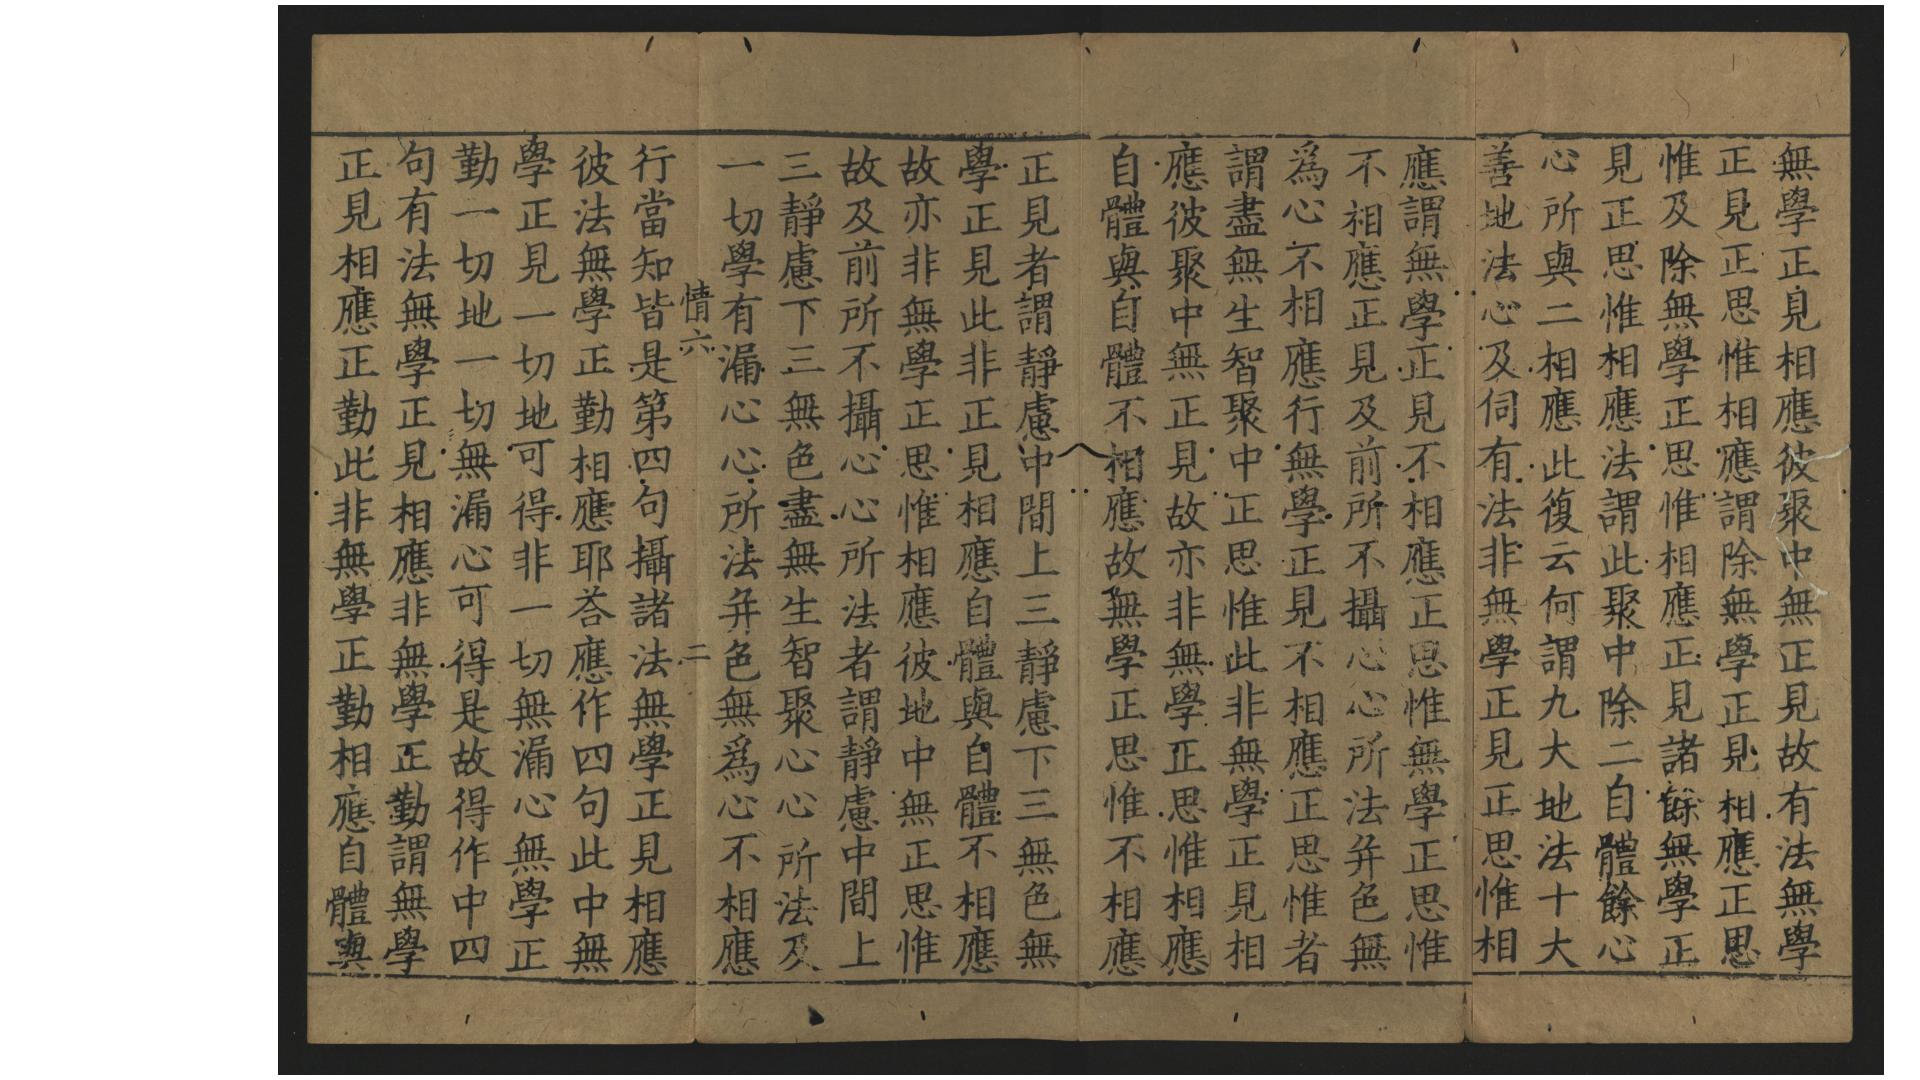 無學正見相應彼聚中無正見故有法無學
正見正思惟相應謂除無學正見相應正思
惟及除無學正思惟相應正見諸餘無學正
見正思惟相應法謂此聚中除二自體餘心
心所與二相應此復云何謂九大地法十大
善地法心及伺有法非無學正見正思惟相
應謂無學正見不相應正思惟無學正思惟
不相應正見及前所不攝心心所法并色無
爲心不相應行無學正見不相應正思惟者
謂盡無生智聚中正思惟此非無學正見相
應彼聚中無正見故亦非無學正思惟相應
自體與自體不相應故無學正思惟不相應
正見者謂靜慮中間上三靜慮下三無色無
學正見此非正見相應自體與自體不相應
故亦非無學正思惟相應彼地中無正思惟
故及前所不攝心心所法者謂靜慮中間上
三靜慮下三無色盡無生智聚心心所法及
一切學有漏心心所法并色無爲心不相應
情六 二
行當知皆是第四句攝諸法無學正見相應
彼法無學正勤相應耶荅應作四句此中無
學正見一切地可得非一切無漏心無學正
勤一切地一切無漏心可得是故得作中四
句有法無學正見相應非無學正勤謂無學
正見相應正勤此非無學正勤相應自體與